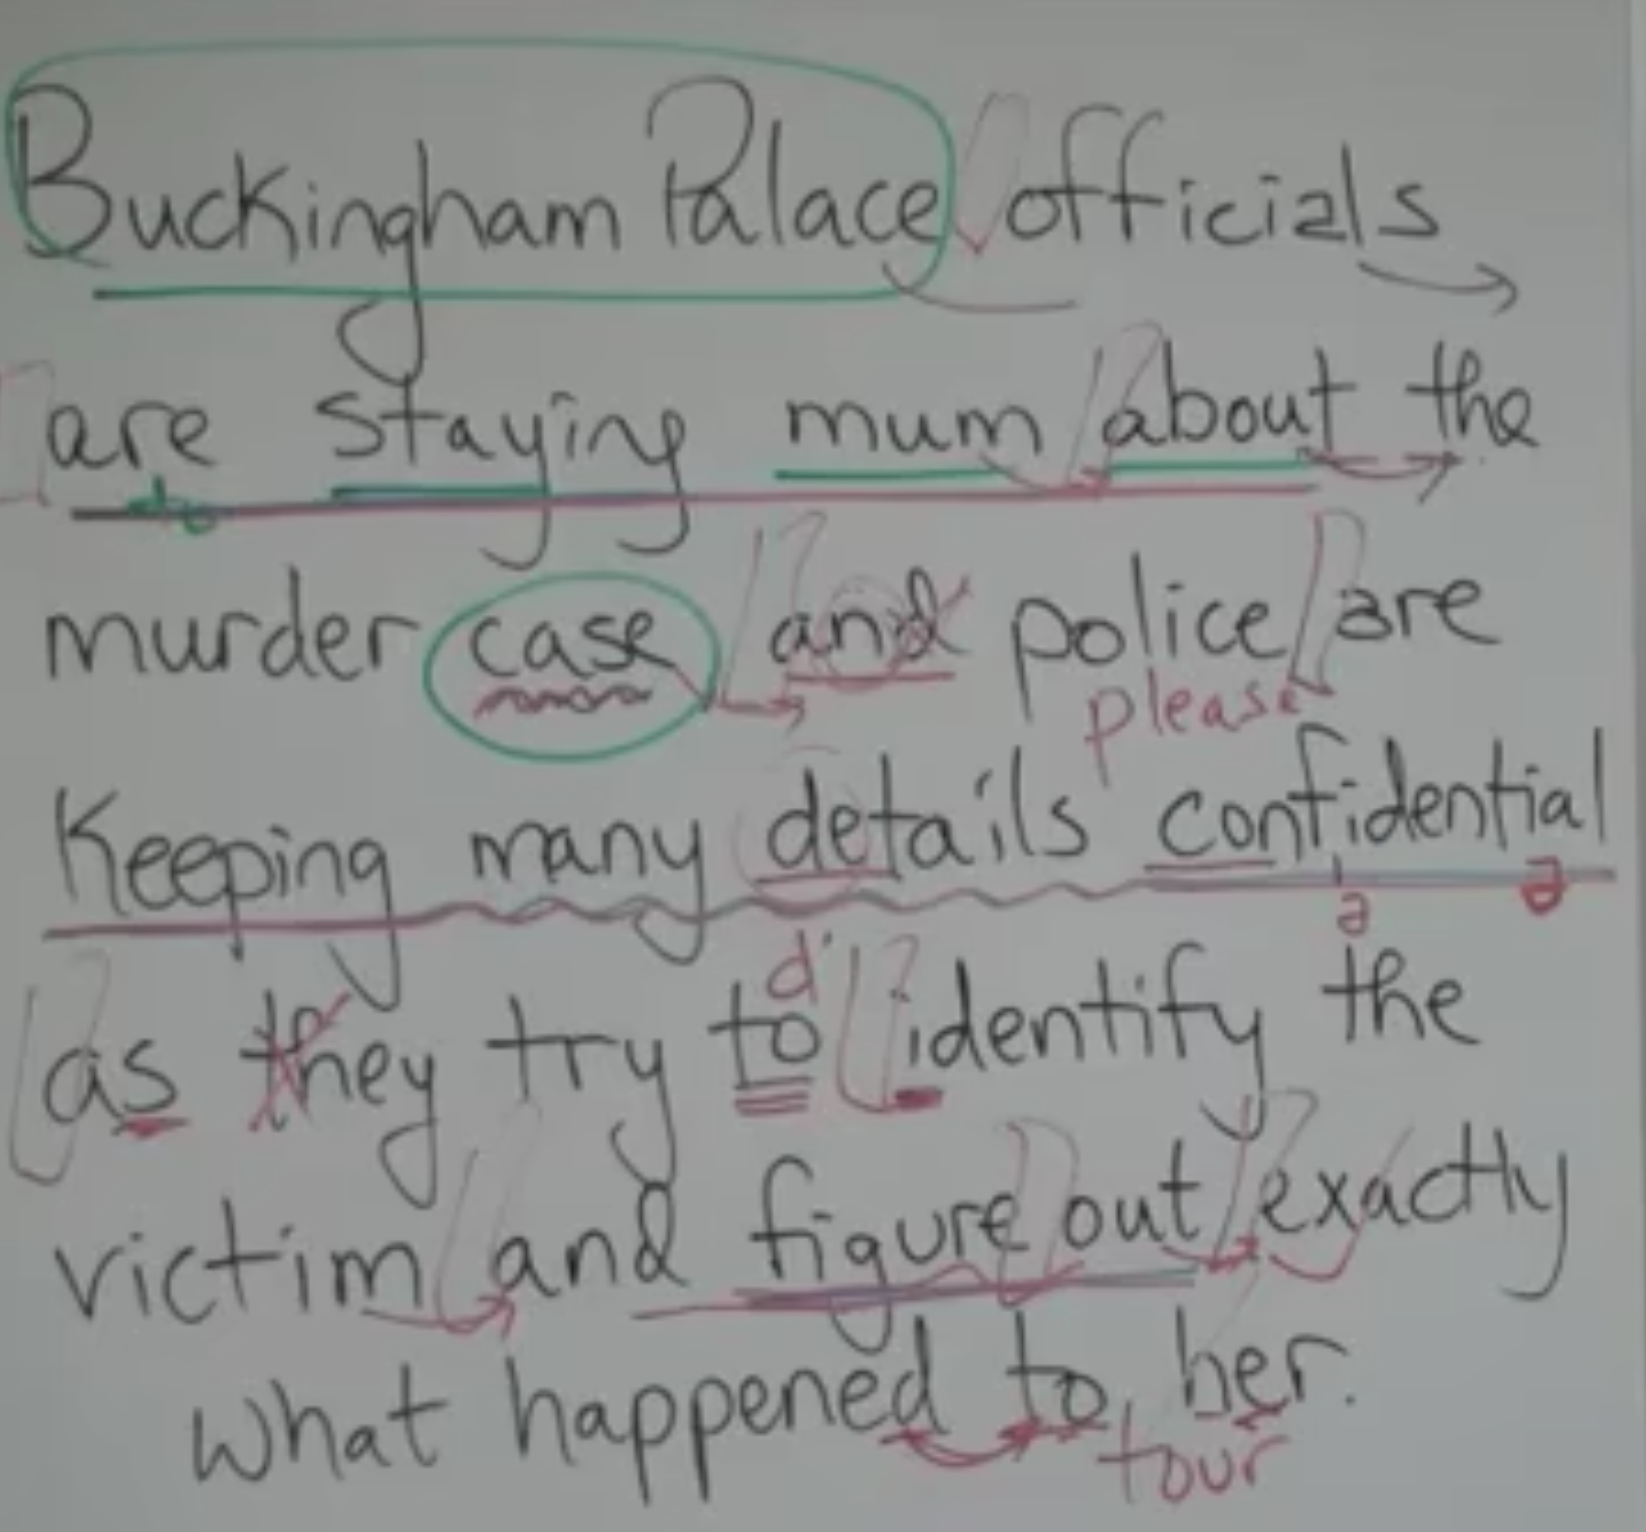 Buckingham Palace officials
are staying mum about the
murder case and police are
please
Keeping many details confidential
a a
d
as they try to identify the
victim and figure out exactly
what happened to her.
tour